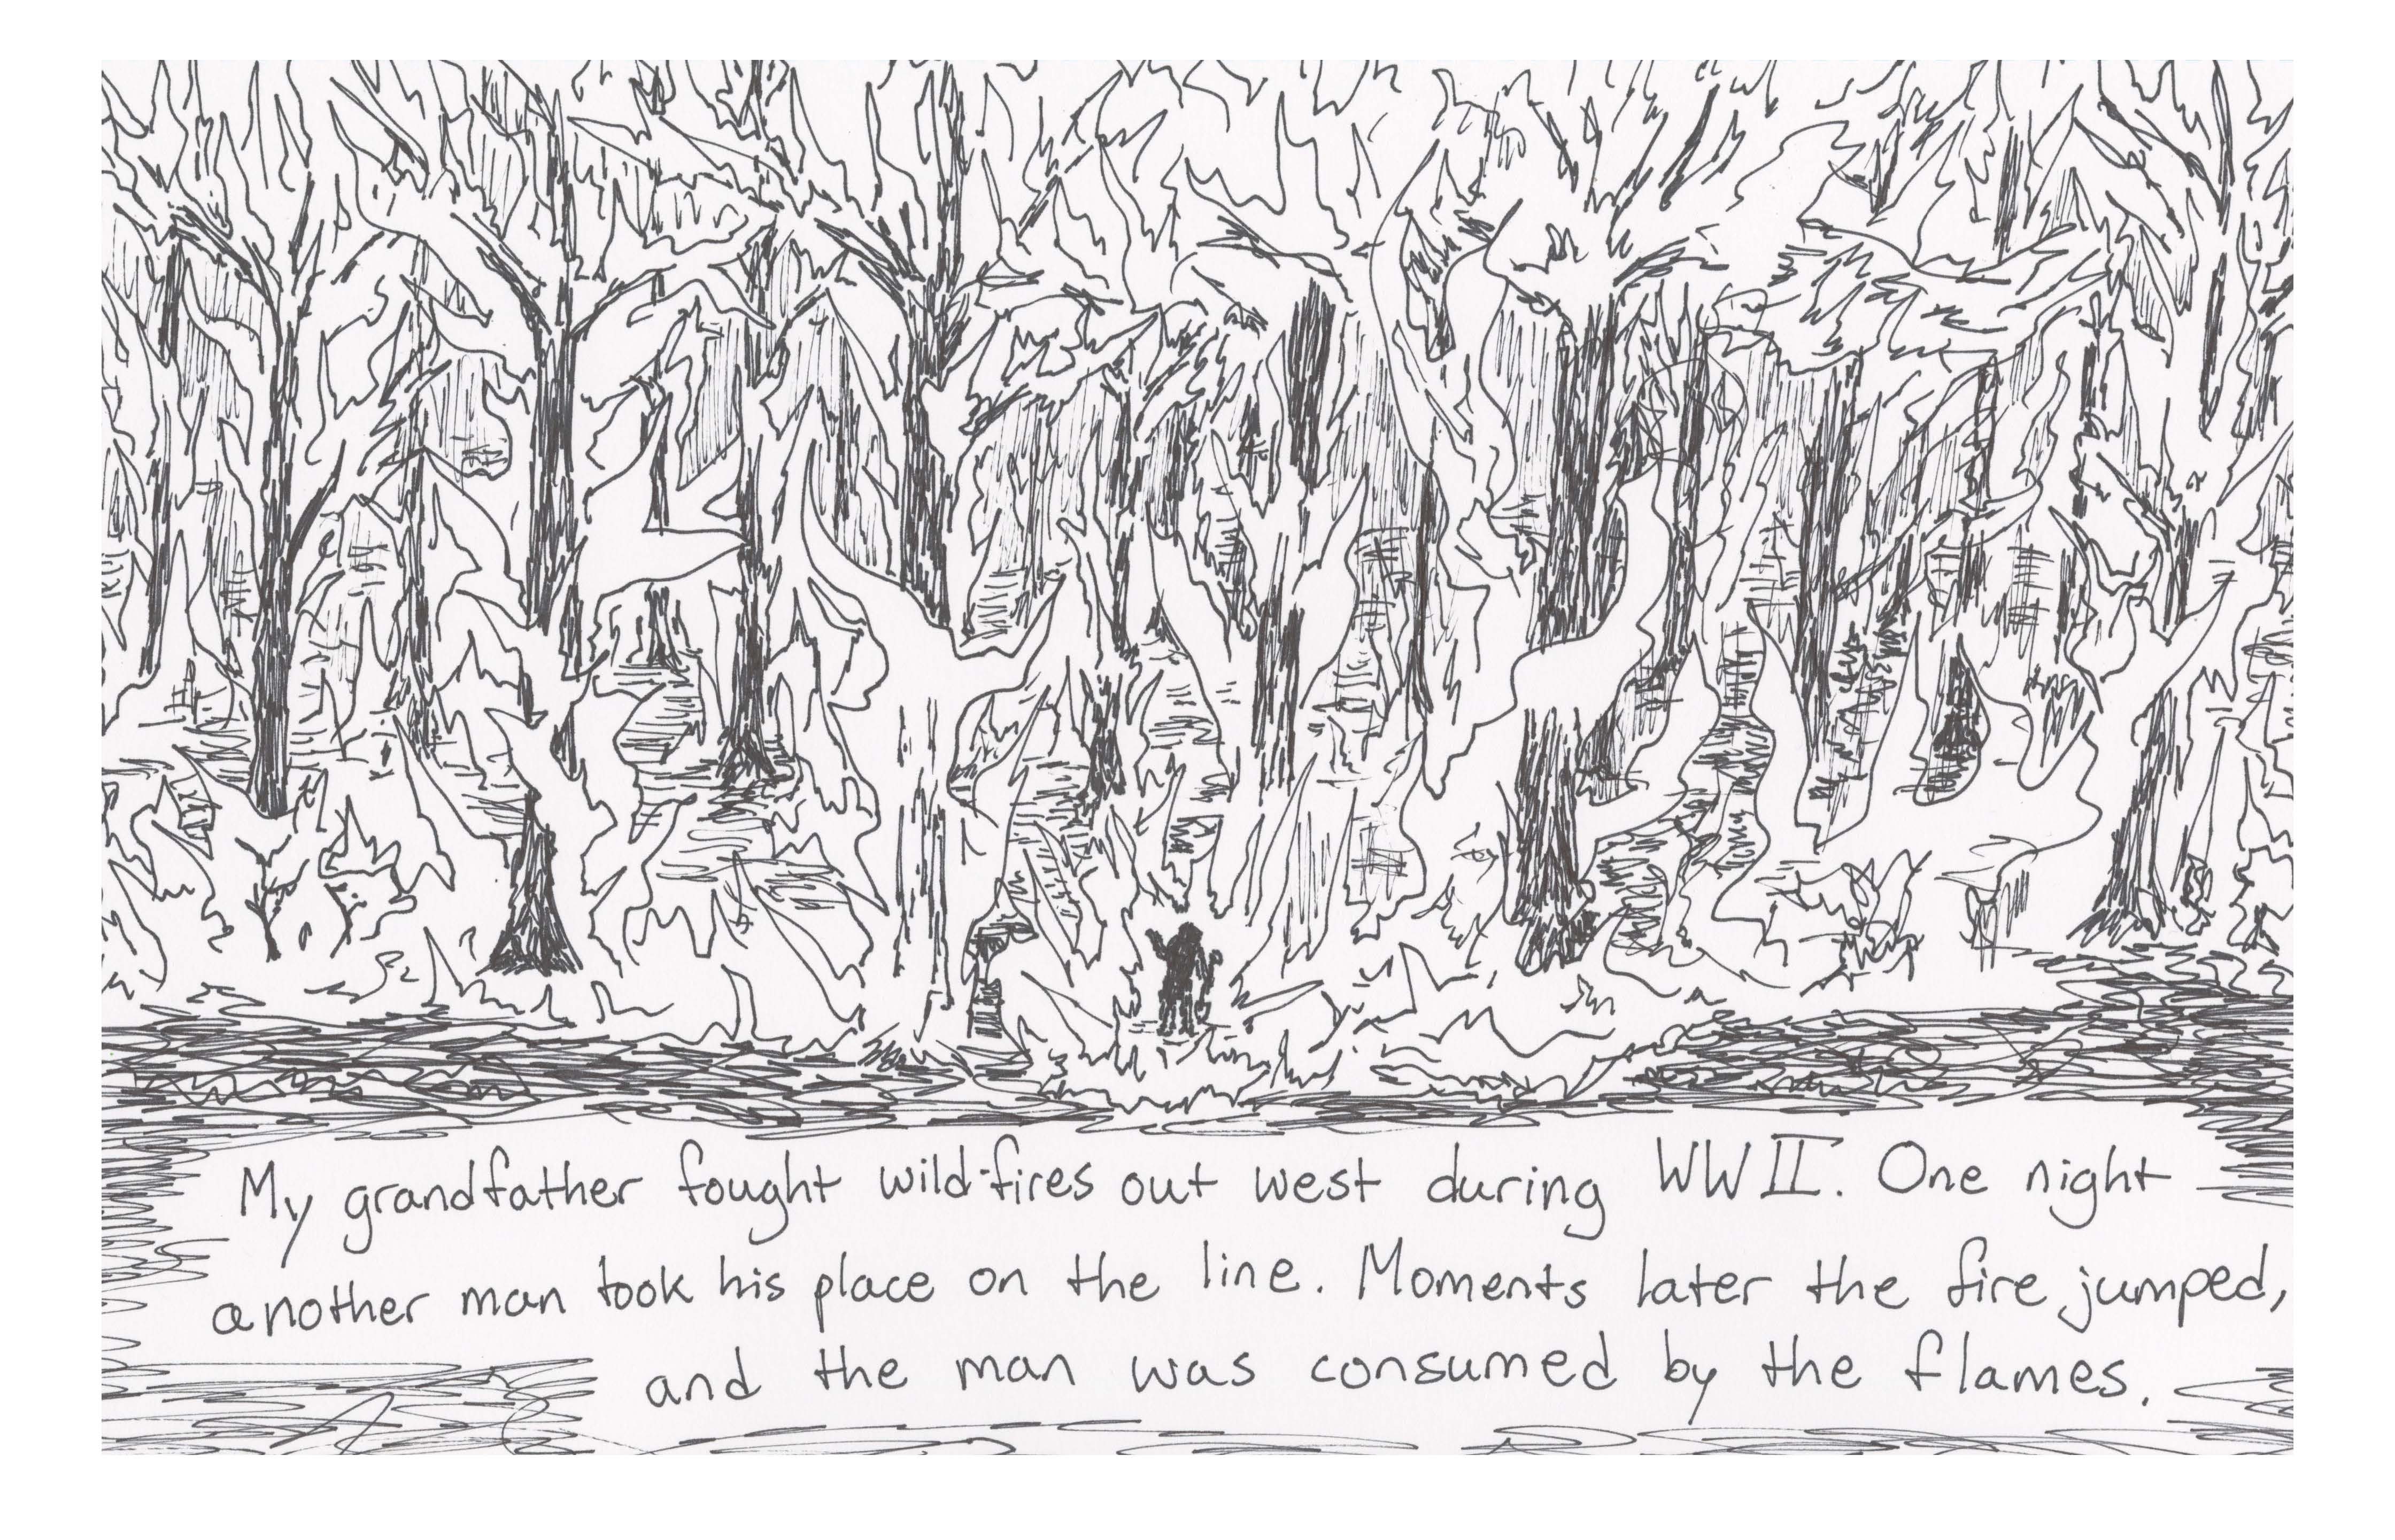 My grandfather fought wild-fires out west during WWII. One night
another man took his place on the line. Moments later the fire jumped,
and the man was consumed by the flames.